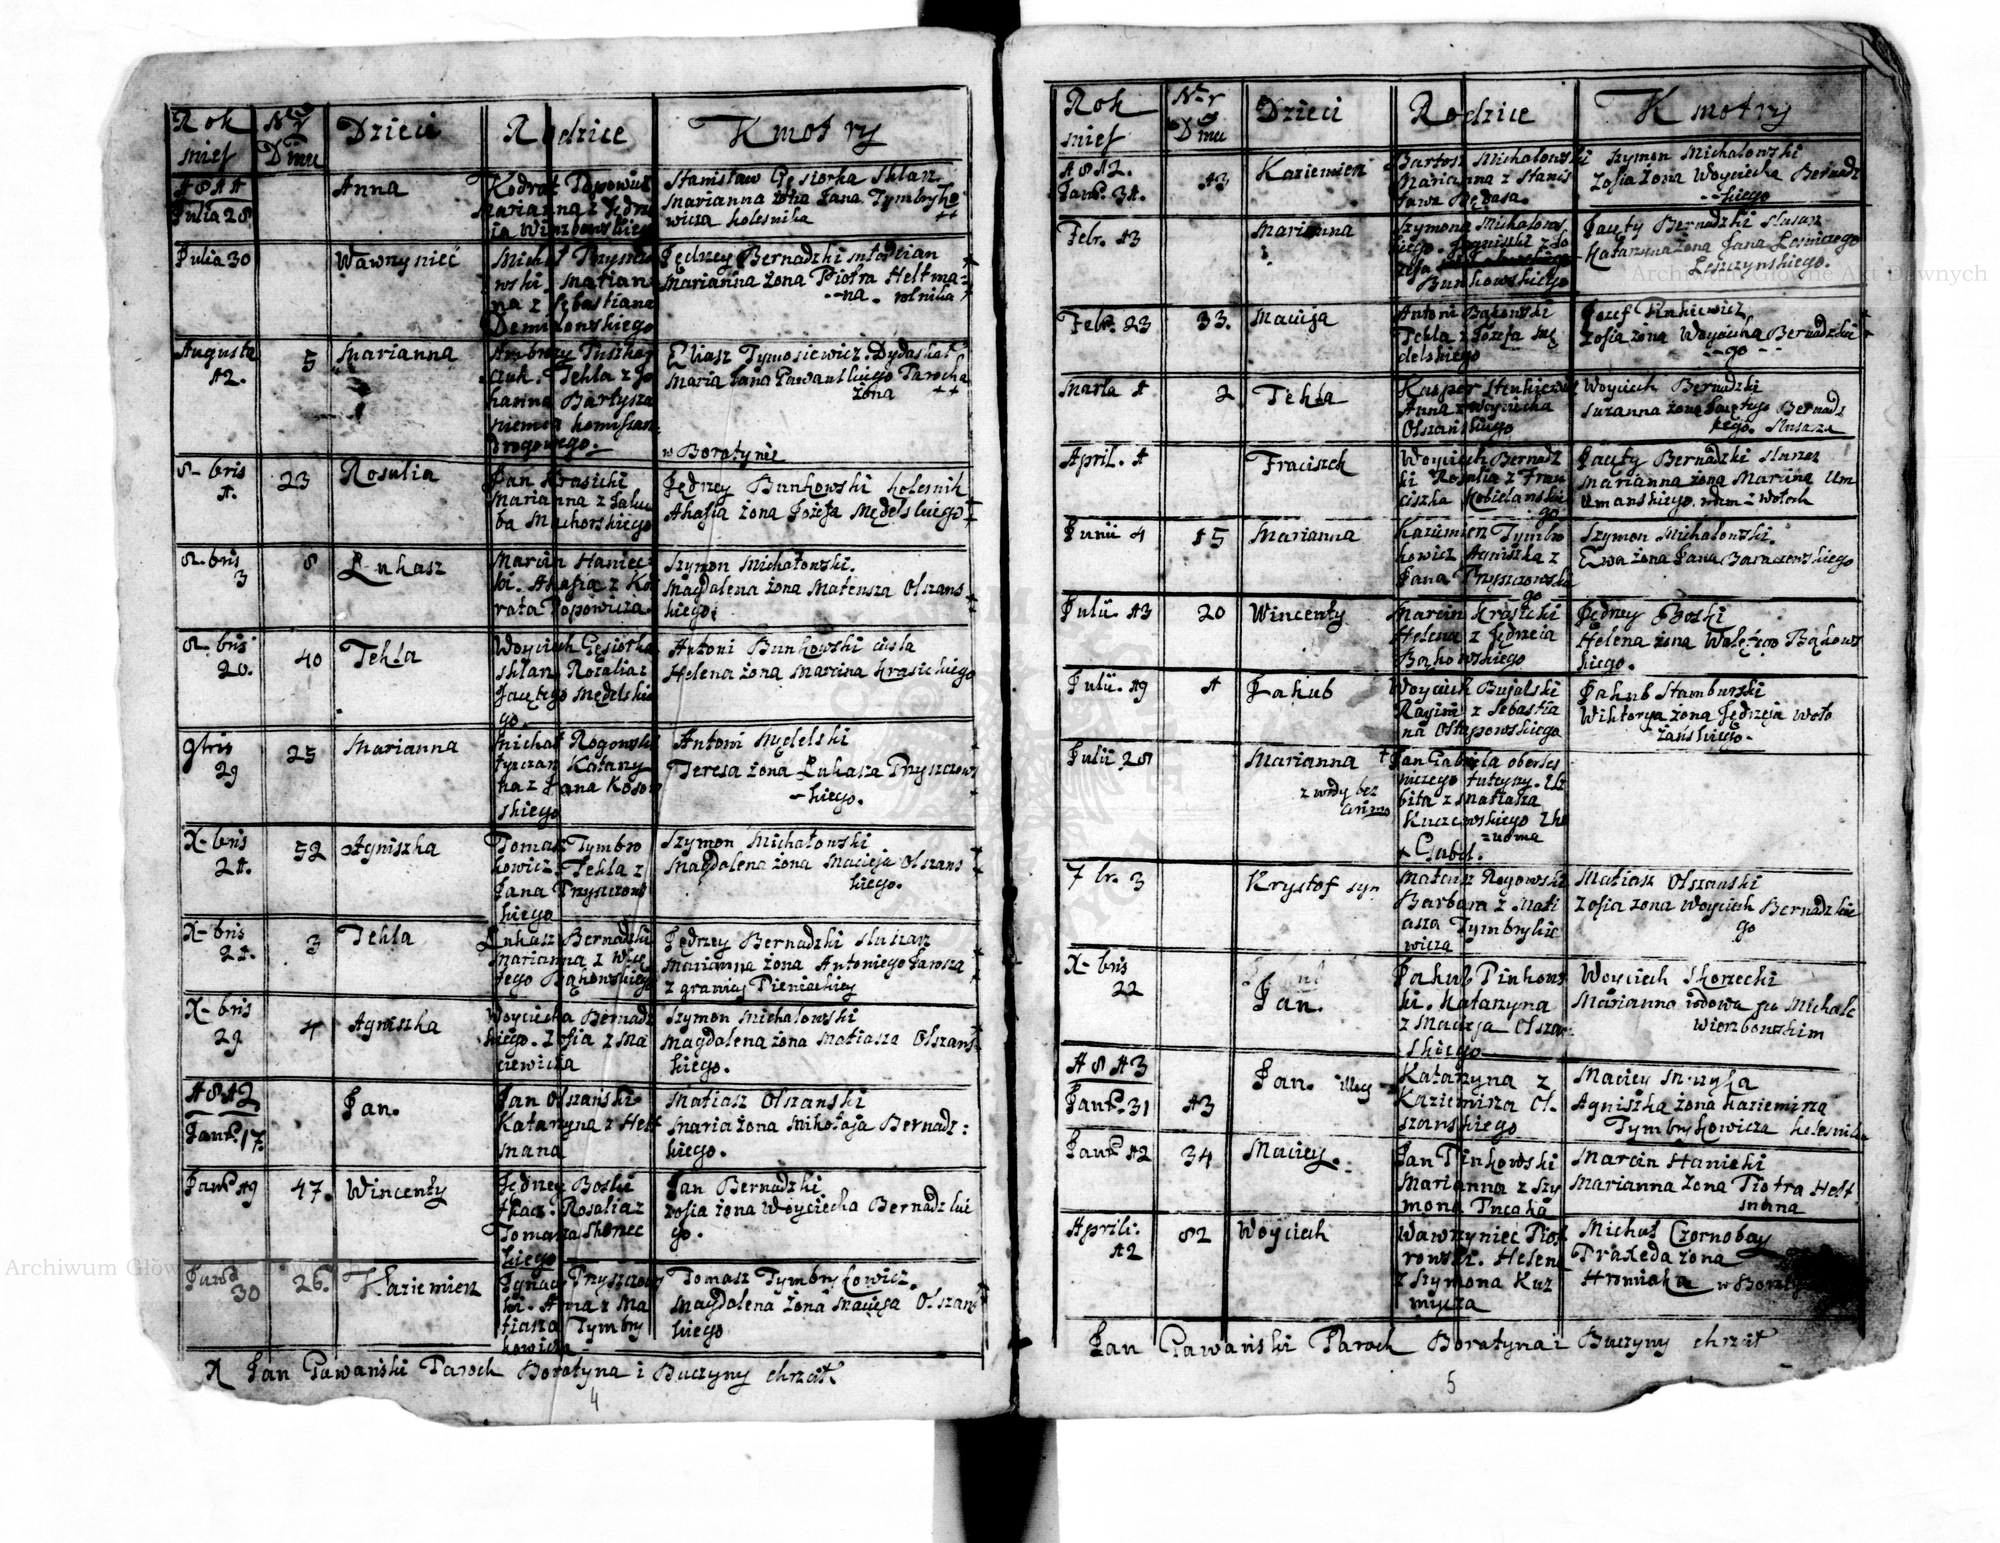 Rok
mies
Nr
Dmu
Dzieci
Rodzice
Kmotry
1811
Julia 28
Anna
Kodrat Popowicz
Marianna z Jędrze
ia Wierzbowskiego
Stanisław Gęsiorka sklarz
Marianna żona Jana Tymbryko
wicza kolesnika
Julia 30
Wawrzyniec
Michał Pryszczo
wski. Marian
na z Sebastiana
Demidowskiego
Jędrzey Bernadzki młodcian
Marianna żona Piotra Heltma-
--na. rolnika
Augusta
12.
5
Marianna
Ambroży
Tekla z Jo
hanna Bartysza
niemca
drogowego.
Eliasz Tymosiewicz. Dydaskał
Maria Jana Gawańskiego Parocha
żona
w Boratynie
8-bris
1.
23
Rosalia
Jan Krasicki
Marianna z Jaku
ba Machorskiego
Jędrzey Bunkowski kolesnik
Akafia żona Jozefa Mędelskiego
8-bris
3
8
Łukasz
Marcin Haniec-
ki. Akafia z Ko
rata Popowicza
Szymon Michałowski.
Magdalena żona Mateusza Olszans
kiego.
8-bris
20.
40
Tekla
Woyciech Gęsiorka
sklarz Rozalia z
Jacętego Mędelskie
go.
Antoni Bunkowski cisla
Helena żona Marcina Krasickiego
9bris
29
25
Marianna
Michał Rogowski
Katarzy
na z Jana Kosow
skiego
Antoni Mędelski
Teresa żona Łukasza Pryszczows
-kiego.
X-bris
21.
52
Agniszka
Tomasz Tymbro
kowicz. Tekla z
Jana Pryszczows
kiego
Szymon Michałowski
Magdalena żona Macieja Olszans
kiego.
X-bris
21.
3
Tekla
Łukasz Bernadzki
Marianna z Wię
Bąkowskiego
Jędrzey Bernadzki slusarz
Marianna żona Antoniego Jarosza
z granicy Pieniackiey
X-bris
29
4
Agniszka
Woyciecha Bernadz
kiego. Zofia z Ma
ciewicka
Szymon Michałowski
Magdalena żona Matiasza Olszans
kiego.
1812
Janr. 17.
Jan.
Jan Olszański
Katarzyna z Helt
mana
Matiasz Olszanski
Maria żona Mikołaja Bernadz:
kiego.
Janr. 19
47.
Wincenty
Jędrzey Boski
tkacz. Rosalia z
Tomasza Skorec
kiego
Jan Bernadzki
Zofia żona Woyciecha Bernadzkie
go.
Janr.
30
26.
Kaziemierz
Ignacy Pryszczows
ki. Anna z Ma
tiasza Tymbry
kowicza
Tomasz Tymbrykowicz.
Magdalena żona Macieja Olszans
kiego
X Jan Gawański Paroch Boratyna i Buczyny chrzcił.
4
Rok
mies
Nr
Dmu
Dzieci
Rodzice
Kmotry
1812.
Janr. 31.
13
Kaziemierz
Bartosz Michalowski
Marianna z Stanis
ława Mędasa.
Szymon Michalowski
Zofia żona Woyciecha Bernadz
--kiego
Febr. 13
Marianna
Szymona Michałows
kiego. Agniszki z Jo
zefa
Bunkowskiego
Jacęty Bernadzki slusarz
Katarzyna żona Jana Lesniczego
Leszczynskiego.
Febr. 23
33.
Macieja
Antoni Bąkowski
Tekla z Jozefa Mę
delskiego
Jozef Pinkiewicz
Zofia żona Woyciecha Bernadzkie
--go--
Marta 1
2
Tekla
Kasper Stenkiewicz
Anna z Woyciecha
Olszańskiego
Woyciech Bernadzki
Suzanna żona Jacętego Bernadz
kiego. slusarza
April. 1
Fraciszek
Woyciech Bernadz
ki Rosalia z Fran
ciszka Kobielanskie
go
Jacęty Bernadzki slusarz
Marianna żona Marcina Um
Umanskiego.
Junii 4
15
Marianna
Kaziemierz Tymbro
kowicz Agniszka z
Jana Pryszczowskie
go
Szymon Michałowski.
Ewa żona Jana Baraczewskiego
Julii. 13
20
Wincenty
Marcin Krasicki
Helena z Jędrzeia
Bąkowskiego
Jędrzey Boski
Helena żona Walętego Bąkows
kiego.
Julii. 19
1
Jakub
Woyciech Bujalski
Regina z Sebastia
na Ostapowskiego
Jakub Stamburski
Wiktorya żona Jędrzeja Woło
żańskiego.
Julii 28
Marianna
z wody bez
† Jan Gabriela oberles
niczego tuteyszy. Elz
bita z Matiasza
Kuczewskiego
† Gabel.
7br. 3
Krysztof syn
Mateusz Rogowski
Barbara z Mati
asza Tymbrykie
wicza
Matiasz Olszanski
Zofia żona Woyciech Bernadzkie
go
X-bris
22
Jan.
Jakub Pinkows
ki. Katarzyna
z Macieja Olszan-
skiego
Woyciech Skorecki
Marianna wdowa po Michale
Wierzbowskim
1813
Janr. 31
13
Jan. illeg
Katarzyna z
Kaziemirza Ol-
szanskiego
Maciey Muzyka
Agniszka żona Kaziemirza
Tymbrykowicza kolesnika
Janr. 12
34
Maciey.
Jan Pinkowski
Marianna z Szy
mona Pucaka
Marcin Hanicki
Marianna żona Piotra Helt
mana
Aprili:
12
82
Woyciech
Wawrzyniec Piot
rowski. Helena
z Szymona Kuz
micza
Michał Czornobay
Praxeda żona
Hromiaka w Boraty
Jan Gawański Paroch Boratyna i Buczyny chrzcił
5
Archiwum Główne Akt Dawnych
Archiwum Główne Akt Dawnych